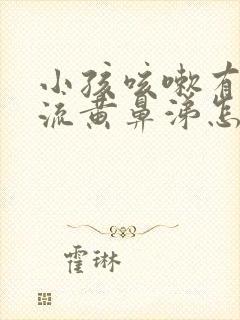 小孩咳嗽有
流黄鼻涕怎
霍琳